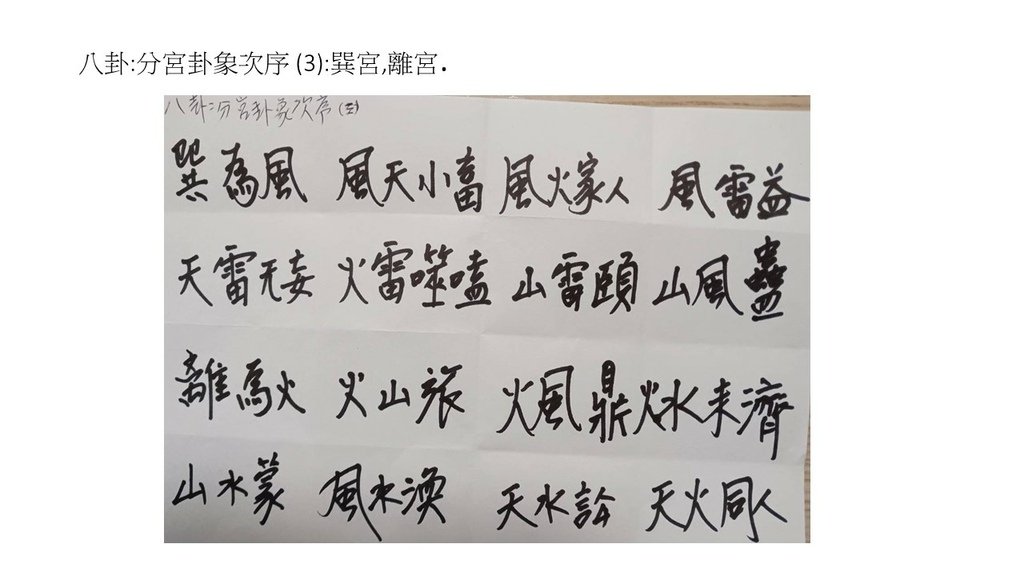 八卦:分宮卦象次序 (3):巽宮,離宮.
八卦:分宮卦象次序(三)
巽為風 風天小畜 風火家人 風雷益
天雷无妄 火雷噬嗑 山雷頤 山風蠱
離為火 火山旅 火風鼎 火水未濟
山水蒙 風水渙 天水訟 天火同人